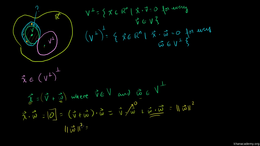 ?
ℝⁿ
V
V⊥
V⊥ = { x⃗ ∈ ℝⁿ | x⃗ · v⃗ = 0 for every v⃗ ∈ V }
(V⊥)⊥ = { x⃗ ∈ ℝⁿ | x⃗ · w⃗ = 0 for every w⃗ ∈ V⊥ }
x⃗ ∈ (V⊥)⊥
x⃗ = (v⃗ + w⃗) where v⃗ ∈ V and w⃗ ∈ V⊥
x⃗ · w⃗ = 0 = (v⃗ + w⃗) · w⃗ = v⃗ · w⃗ + w⃗ · w⃗ = ||w⃗||²
||w⃗||² =
khanacademy.org